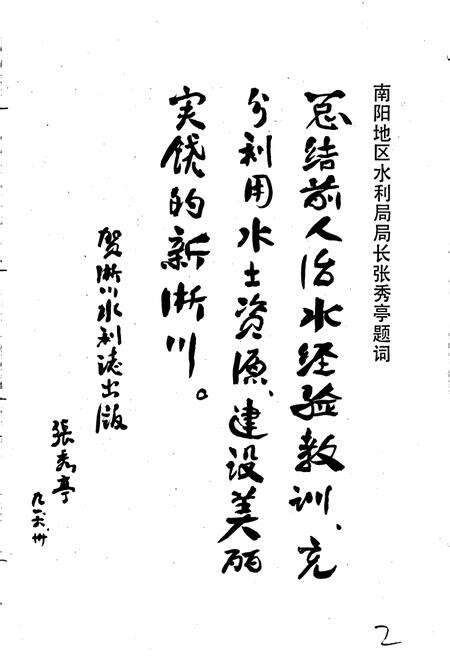 南阳地区水利局局长张秀亭题词
总结前人治水经验教训、充
分利用水土资源、建设美丽
实饶的新淅川。
贺淅川水利誌出版
張秀亭
2